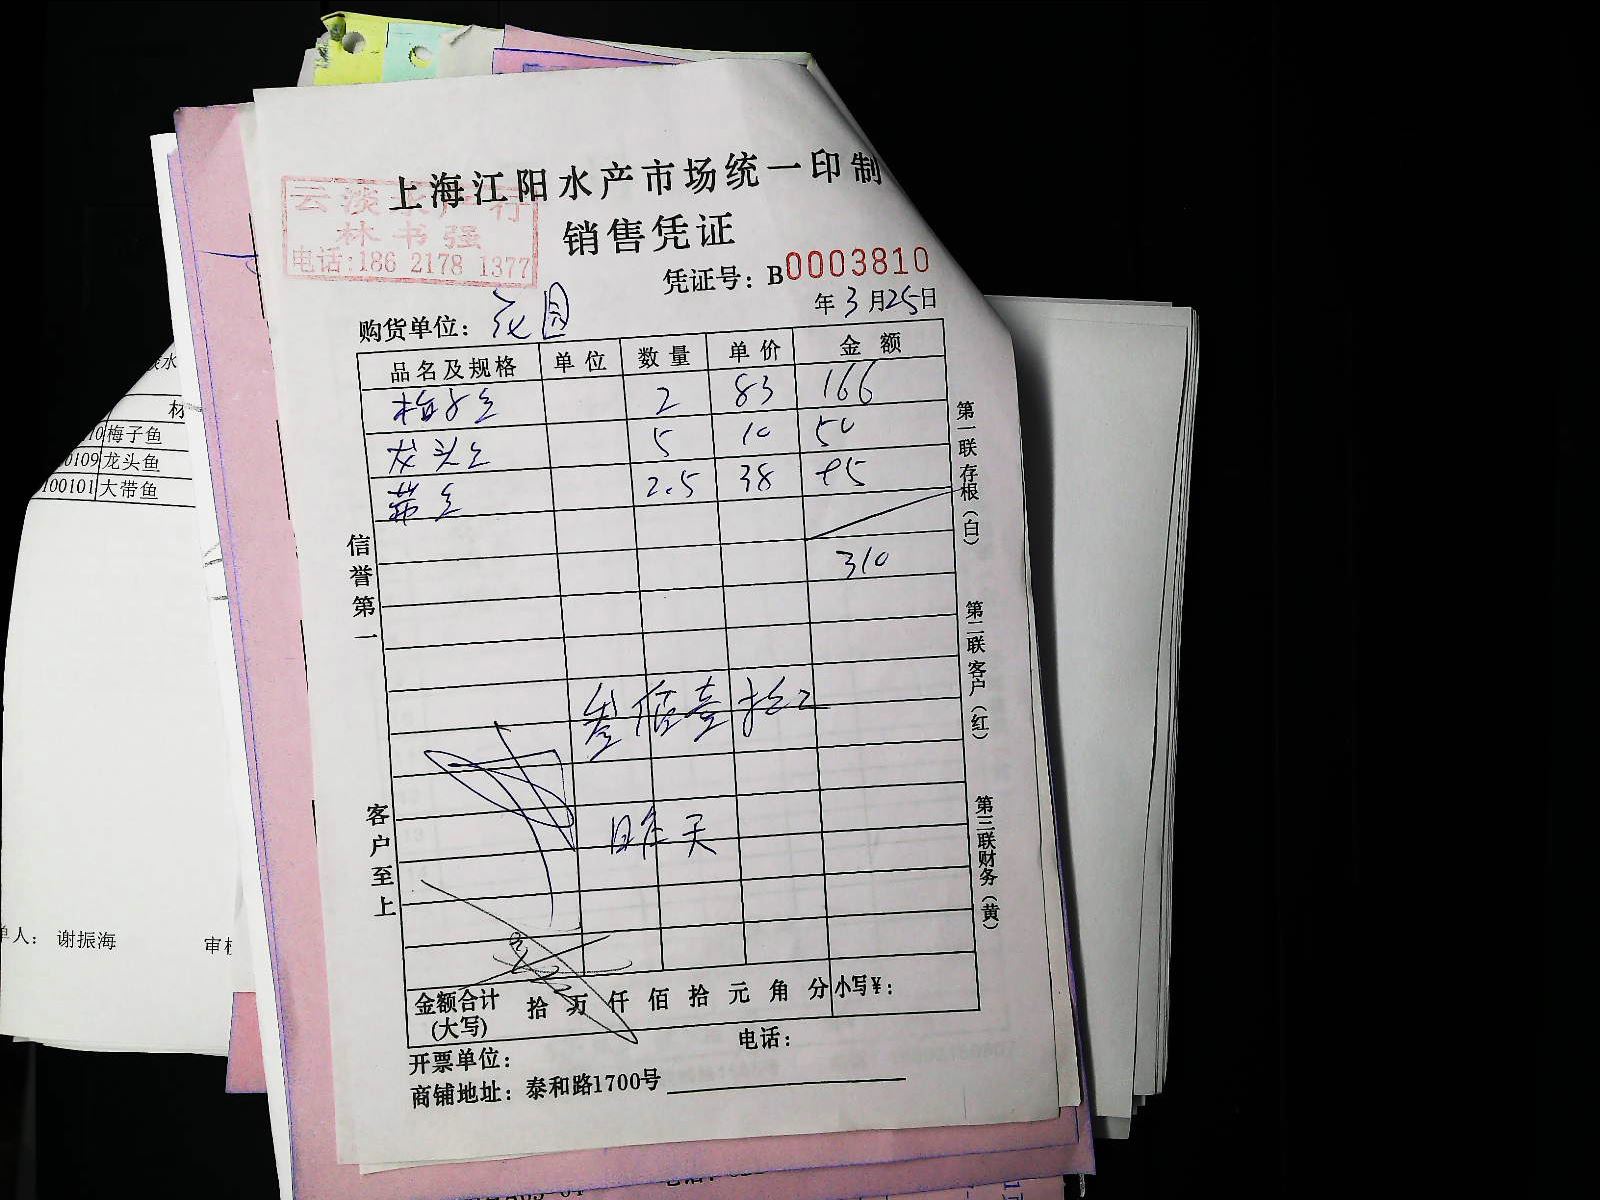 上海江阳水产市场统一印制
云淡水产行
林书强
电话:186 2178 1377
销售凭证
凭证号：B0003810
年3月25日
购货单位：花园
品名及规格 单位 数量 单价 金额
梅子鱼 2 83 166
龙头鱼 5 10 50
带鱼 2.5 38 95
310
叁佰壹拾元
昨天
信誉第一
客户至上
第一联存根（白）
第二联客户（红）
第三联财务（黄）
金额合计(大写) 拾万仟佰拾元角分 小写¥：
开票单位： 电话：
商铺地址：泰和路1700号
淡水
材
10 梅子鱼
0109 龙头鱼
100101 大带鱼
单人： 谢振海 审核